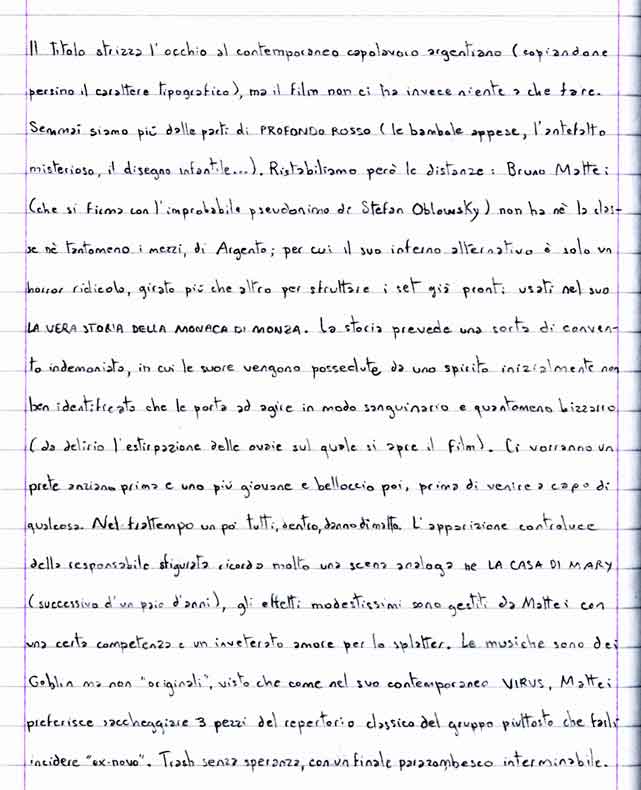 Il titolo strizza l'occhio al contemporaneo capolavoro argentiano (copiandone
persino il carattere tipografico), ma il film non ci ha invece niente a che fare.
Semmai siamo più dalle parti di PROFONDO ROSSO (le bambole appese, l'antefatto
misterioso, il disegno infantile...). Ristabiliamo però le distanze: Bruno Mattei
(che si firma con l'improbabile pseudonimo di Stefan Oblowsky) non ha nè la clas-
se nè tantomeno i mezzi, di Argento; per cui il suo inferno alternativo è solo un
horror ridicolo, girato più che altro per sfruttare i set già pronti usati nel suo
LA VERA STORIA DELLA MONACA DI MONZA. La storia prevede una sorta di conven-
to indemoniato, in cui le suore vengono possedute da uno spirito inizialmente non
ben identificato che le porta ad agire in modo sanguinario e quantomeno bizzarro
(da delirio l'estirpazione delle ovaie sul quale si apre il film). Ci vorranno un
prete anziano prima e uno più giovane e belloccio poi, prima di venire a capo di
qualcosa. Nel frattempo un po' tutti, dentro, danno di matto. L'apparizione controluce
della responsabile sfigurata ricorda molto una scena analoga ne LA CASA DI MARY
(successivo d'un paio d'anni), gli effetti modestissimi sono gestiti da Mattei con
una certa competenza e un inveterato amore per lo splatter. Le musiche sono dei
Goblin ma non "originali", visto che come nel suo contemporaneo VIRUS, Mattei
preferisce saccheggiare 3 pezzi del repertorio classico del gruppo piuttosto che farli
incidere "ex-novo". Trash senza speranza, con un finale parazombesco interminabile.